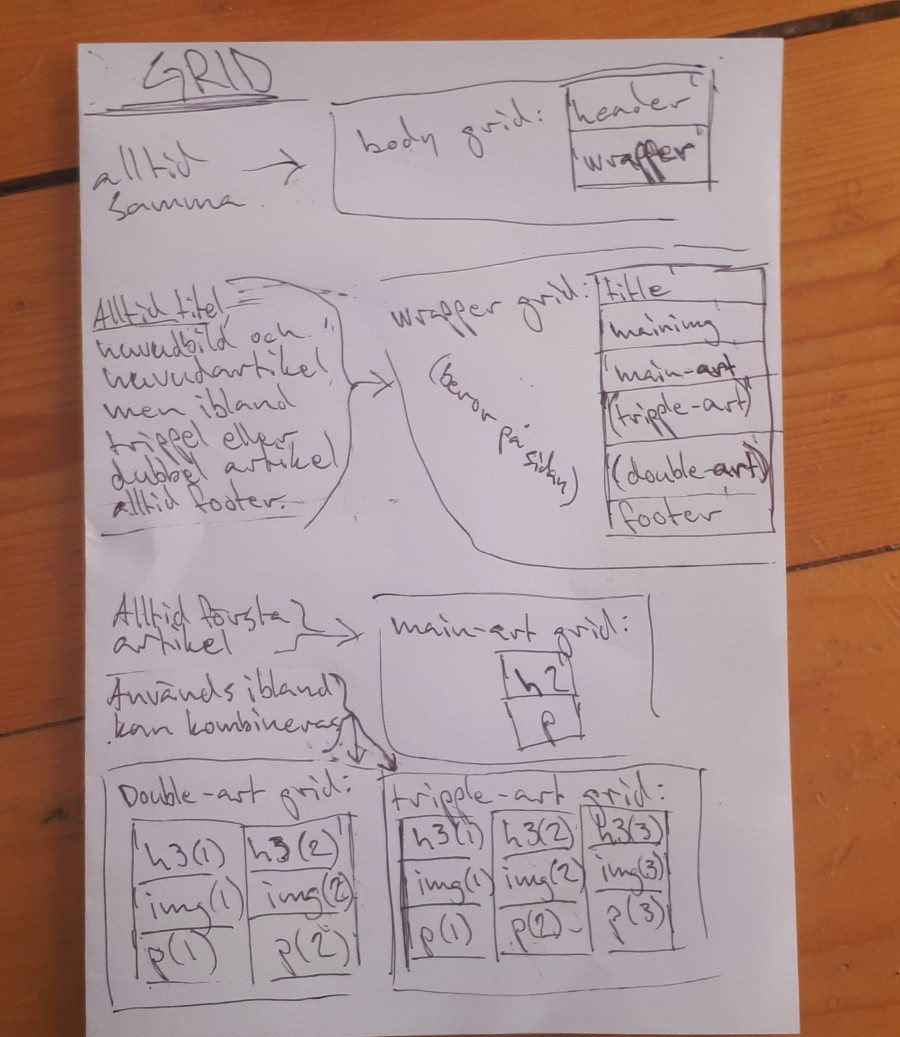 GRID
alltid
samma
body grid:
'header'
'wrapper'
Alltid titel,
huvudbild och
huvudartikel
men ibland
trippel eller
dubbel artikel
alltid footer.
wrapper grid:
(beror på sidan)
title
mainimg
main-art
(tripple-art)
(double-art)
footer
Alltid första
artikel
main-art grid:
h2
p
Används ibland
kan kombineras
Double-art grid:
h3(1) h3(2)
img(1) img(2)
p(1) p(2)
tripple-art grid:
h3(1) h3(2) h3(3)
img(1) img(2) img(3)
p(1) p(2) p(3)